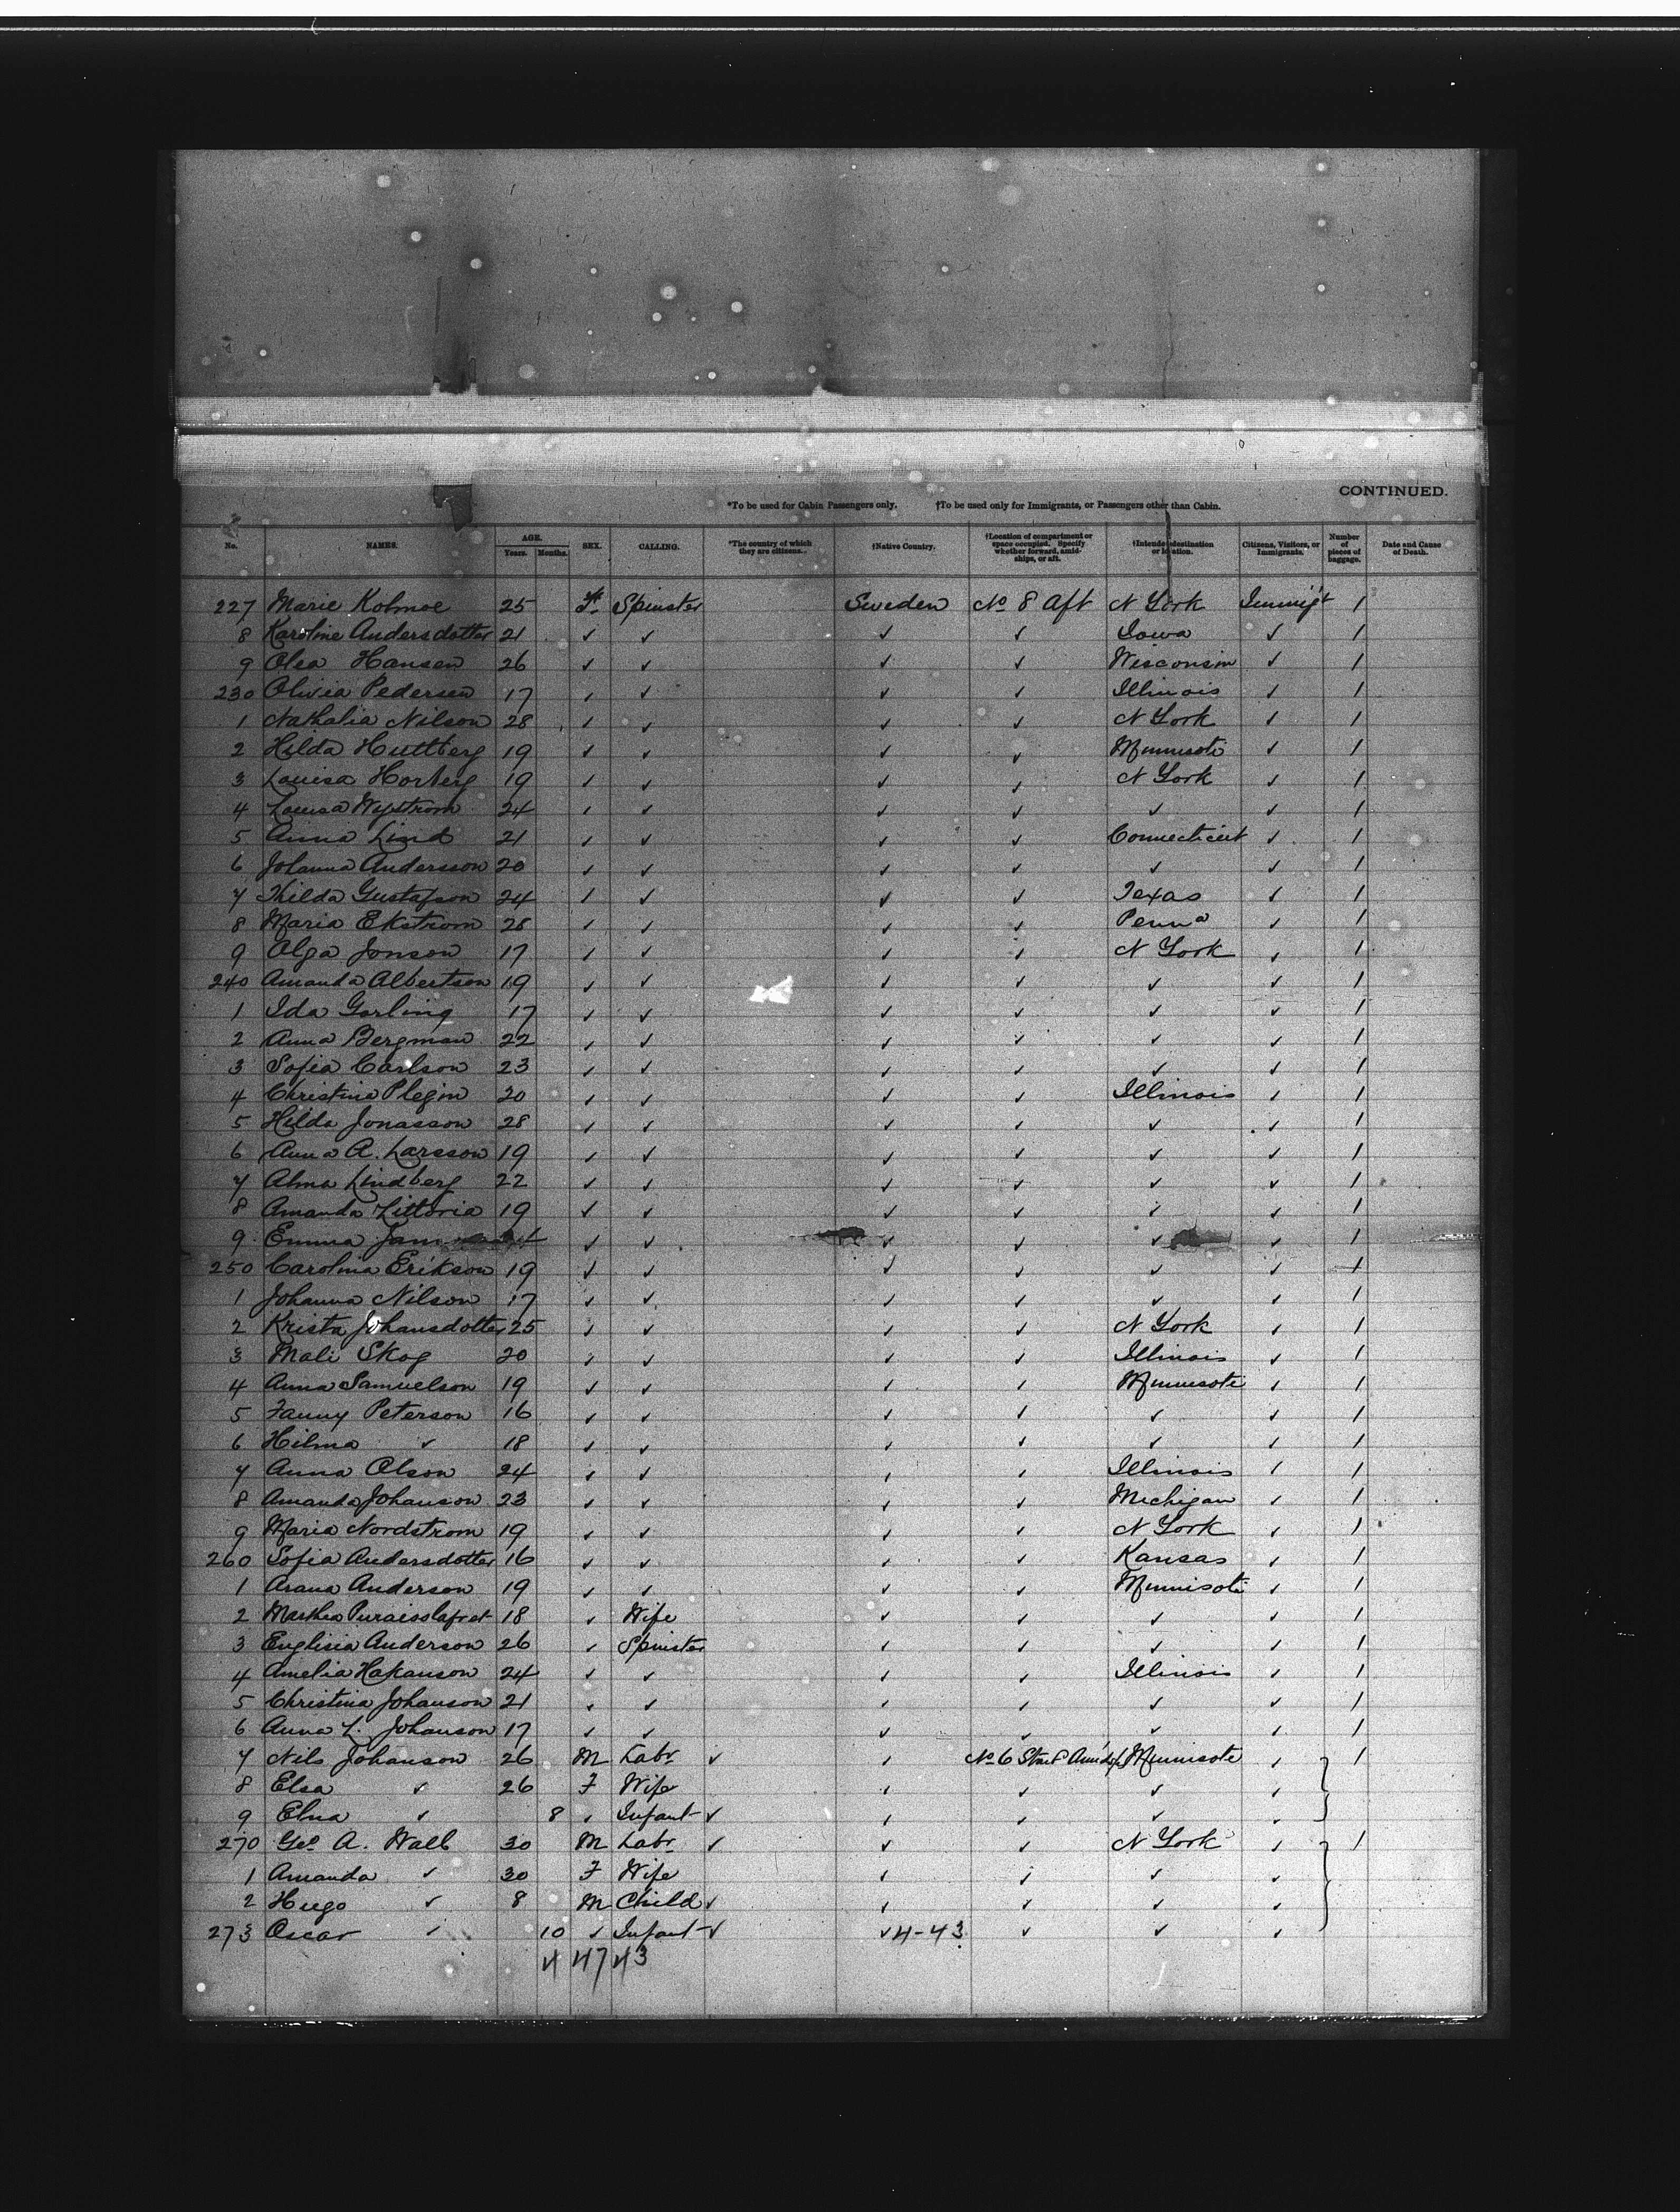 CONTINUED.
*To be used for Cabin Passengers only. †To be used only for Immigrants, or Passengers other than Cabin.
No. NAMES. AGE. Years. Months. SEX. CALLING. *The country of which they are citizens. †Native Country. †Location of compartment or space occupied. Specify whether forward, amidships, or aft. †Intended destination or location. Citizens, Visitors, or Immigrants. Number of pieces of baggage. Date and Cause of Death.
227 Marie Kolmoe 25 F. Spinster Sweden No 8 Aft N York Immig't 1
8 Karoline Andersdotter 21 ✓ ✓ ✓ ✓ Iowa ✓ 1
9 Olea Hansen 26 ✓ ✓ ✓ ✓ Wisconsin ✓ 1
230 Olivia Pedersen 17 ✓ ✓ ✓ ✓ Illinois ✓ 1
1 Nathalia Nilson 28 ✓ ✓ ✓ ✓ N York ✓ 1
2 Hilda Huttberg 19 ✓ ✓ ✓ ✓ Minnisoti ✓ 1
3 Louisa Horberg 19 ✓ ✓ ✓ ✓ N York ✓ 1
4 Louisa Nystrom 24 ✓ ✓ ✓ ✓ ✓ ✓ 1
5 Anna Lind 21 ✓ ✓ ✓ ✓ Connecticut ✓ 1
6 Johanna Andersson 20 ✓ ✓ ✓ ✓ ✓ ✓ 1
7 Thilda Gustafson 24 ✓ ✓ ✓ ✓ Texas ✓ 1
8 Maria Ekstrom 28 ✓ ✓ ✓ ✓ Penna ✓ 1
9 Olga Jonson 17 ✓ ✓ ✓ ✓ N York ✓ 1
240 Amanda Albertson 19 ✓ ✓ ✓ ✓ ✓ ✓ 1
1 Ida Gorling 17 ✓ ✓ ✓ ✓ ✓ ✓ 1
2 Anna Bergman 22 ✓ ✓ ✓ ✓ ✓ ✓ 1
3 Sofia Carlson 23 ✓ ✓ ✓ ✓ ✓ ✓ 1
4 Christina Plegin 20 ✓ ✓ ✓ ✓ Illinois ✓ 1
5 Hilda Jonasson 28 ✓ ✓ ✓ ✓ ✓ ✓ 1
6 Anna A. Larsson 19 ✓ ✓ ✓ ✓ ✓ ✓ 1
7 Alma Lindberg 22 ✓ ✓ ✓ ✓ ✓ ✓ 1
8 Amanda Littoria 19 ✓ ✓ ✓ ✓ ✓ ✓ 1
9 Emma ✓ ✓ ✓ ✓ ✓ ✓ 1
250 Carolina Erikson 19 ✓ ✓ ✓ ✓ ✓ ✓ 1
1 Johanna Nilson 17 ✓ ✓ ✓ ✓ ✓ ✓ 1
2 Krista Johansdotter 25 ✓ ✓ ✓ ✓ N York ✓ 1
3 Mali Skog 20 ✓ ✓ ✓ ✓ Illinois ✓ 1
4 Anna Samuelson 19 ✓ ✓ ✓ ✓ Minnesoti ✓ 1
5 Fanny Peterson 16 ✓ ✓ ✓ ✓ ✓ ✓ 1
6 Hilma ✓ 18 ✓ ✓ ✓ ✓ ✓ ✓ 1
7 Anna Olson 24 ✓ ✓ ✓ ✓ Illinois ✓ 1
8 Amanda Johanson 23 ✓ ✓ ✓ ✓ Michigan ✓ 1
9 Maria Nordstrom 19 ✓ ✓ ✓ ✓ N York ✓ 1
260 Sofia Andersdotter 16 ✓ ✓ ✓ ✓ Kansas ✓ 1
1 Arana Anderson 19 ✓ ✓ ✓ ✓ Minnisoti ✓ 1
2 Marthea 18 ✓ Wife ✓ ✓ ✓ ✓ 1
3 Englisia Anderson 26 ✓ Spinster ✓ ✓ ✓ ✓ 1
4 Amelia Hakanson 24 ✓ ✓ ✓ ✓ Illinois ✓ 1
5 Christina Johanson 21 ✓ ✓ ✓ ✓ ✓ ✓ 1
6 Anna L. Johanson 17 ✓ ✓ ✓ ✓ ✓ ✓ 1
7 Nils Johanson 26 M Labr ✓ ✓ No 6 Minnisote ✓ 1
8 Elsa ✓ 26 F Wife ✓ ✓ ✓ ✓
9 Elna ✓ 8 ✓ Infant ✓ ✓ ✓ ✓ ✓
270 Geo A. Wall 30 M Labr ✓ ✓ ✓ N York ✓ 1
1 Amanda ✓ 30 F Wife ✓ ✓ ✓ ✓
2 Hugo ✓ 8 M Child ✓ ✓ ✓ ✓ ✓
273 Oscar ✓ 10 ✓ Infant ✓ ✓ 4-43 ✓ ✓ ✓
4 47 43